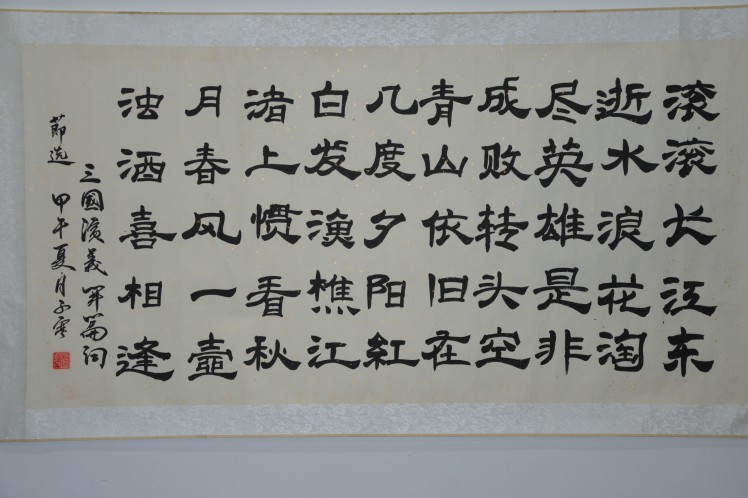 滚滚长江东
逝水浪花淘
尽英雄是非
成败转头空
青山依旧在
几度夕阳紅
白发漁樵江
渚上惯看秋
月春风一壶
浊酒喜相逢
三國演義開篇词
節选 甲午夏月